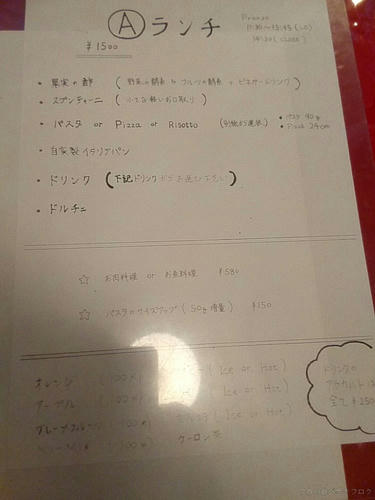 Ⓐランチ
Pranzo
¥1500
・果実の酢 (野菜の酵素 & フルーツの酵素 + ビネガードリンク)
・スプンティーニ (小さな軽いお口取り)
・パスタ or Pizza or Risotto (別紙から選択)
・パスタ 90g
・Pizza 24cm
・自家製イタリアパン
・ドリンク (下記ドリンクからお選び下さい)
・ドルチェ
☆ お肉料理 or お魚料理 ¥580
☆ パスタのサイズアップ (50g増量) ¥150
オレンジ
(Ice or Hot)
アップル
(Ice or Hot)
グレープフルーツ
(Ice or Hot)
ウーロン茶
ドリンクの
アラカルトは
全て¥250